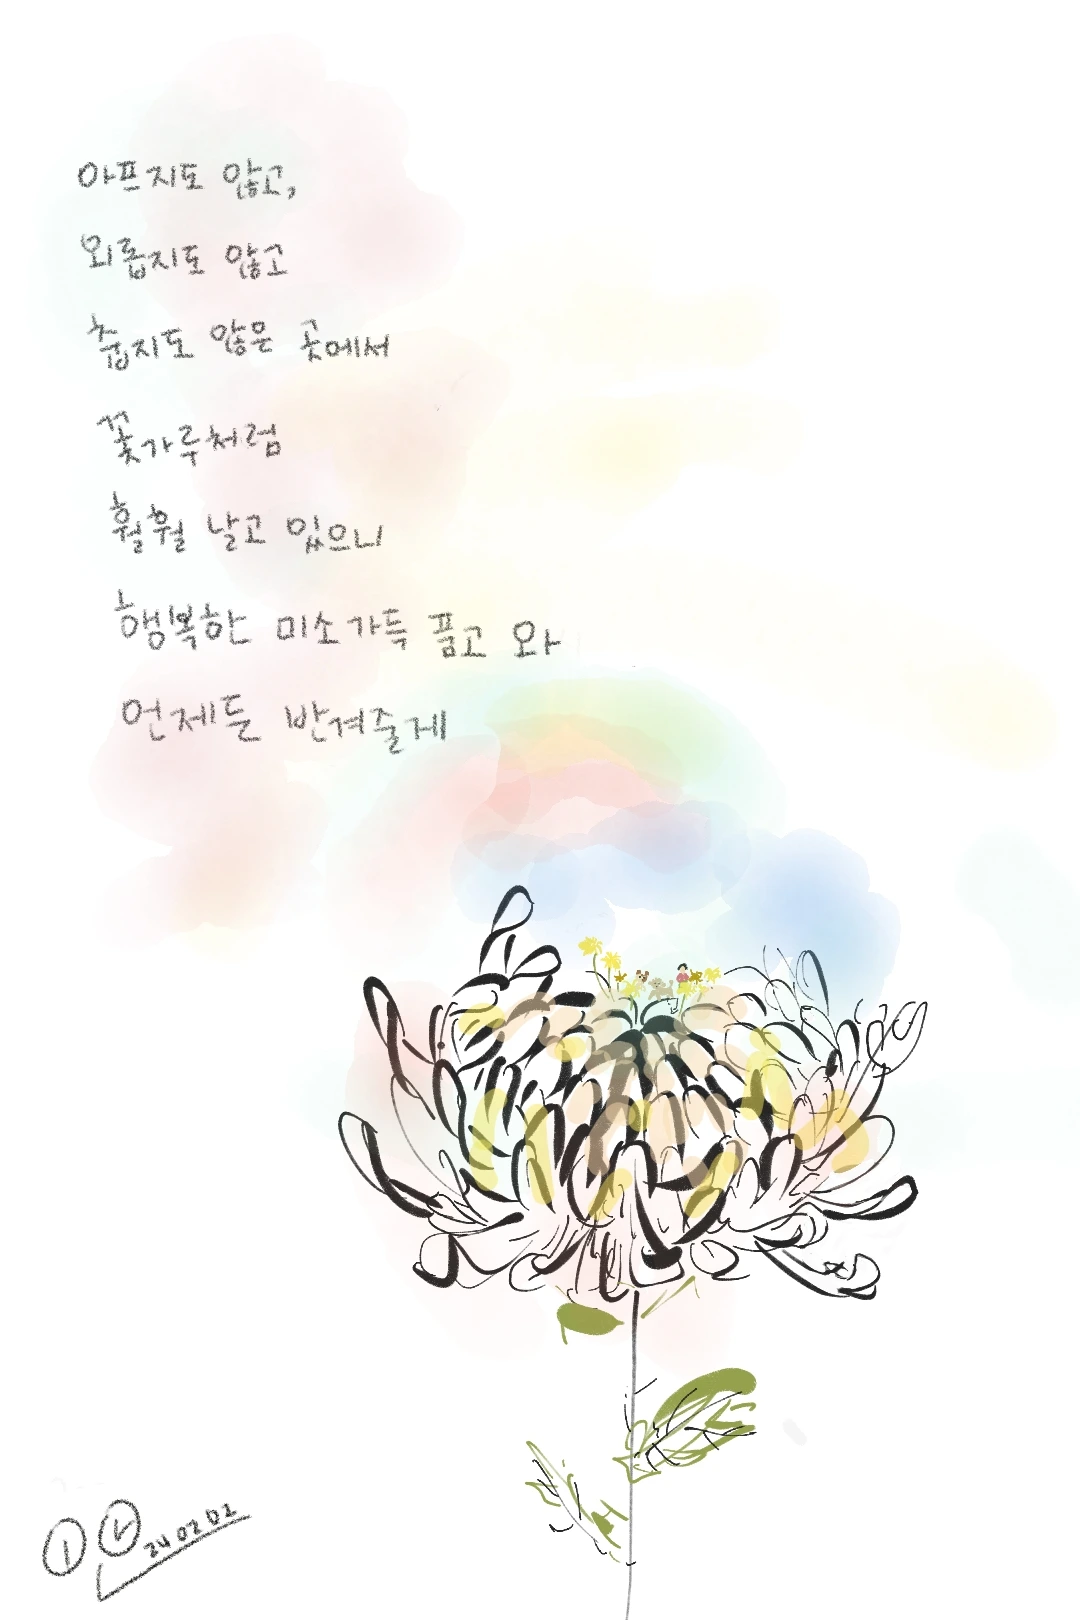 아프지도 않고,
외롭지도 않고
춥지도 않은 곳에서
꽃가루처럼
훨훨 날고 있으니
행복한 미소가득 품고 와
언제든 반겨줄게
240202